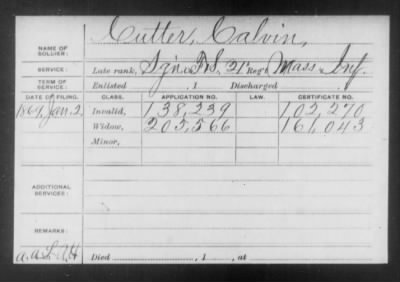 NAME OF SOLDIER: Cutter, Calvin,
SERVICE: Late rank, Sg'n F.S, 21" Reg't Mass Inf.
TERM OF SERVICE: Enlisted , 1 Discharged , 1
DATE OF FILING. CLASS. APPLICATION NO. LAW. CERTIFICATE NO.
1869, Jan. 2, Invalid, 138,239 102,270
Widow, 205,566 161,043
Minor,
ADDITIONAL SERVICES:
REMARKS:
Died , 1 , at